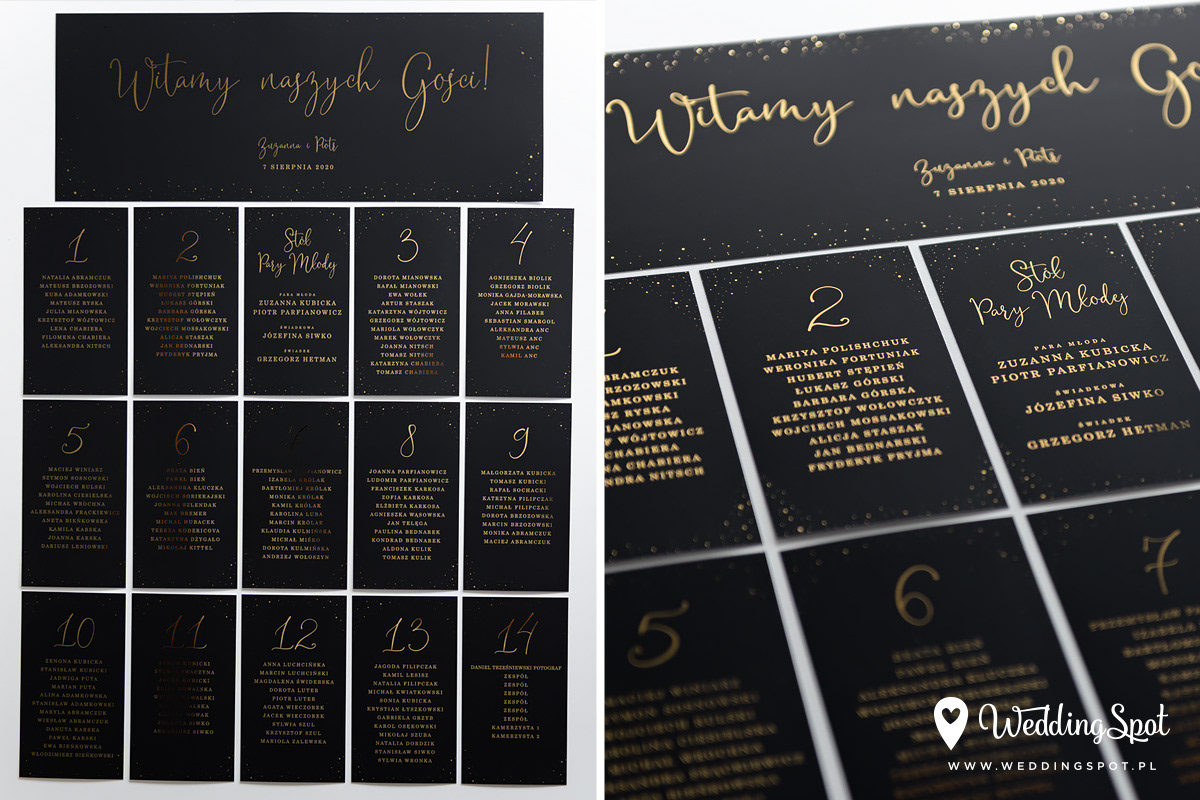 Witamy naszych Gości!
Zuzanna i Piotr
7 SIERPNIA 2020
1
NATALIA ABRAMCZUK
MATEUSZ BRZOZOWSKI
KUBA ADAMKOWSKI
MATEUSZ RYSKA
JULIA MIANOWSKA
KRZYSZTOF WÓJTOWICZ
LENA CHABIERA
FILOMENA CHABIERA
ALEKSANDRA NITSCH
2
MARIYA POLISHCHUK
WERONIKA FORTUNIAK
HUBERT STĘPIEŃ
ŁUKASZ GÓRSKI
BARBARA GÓRSKA
KRZYSZTOF WOŁOWCZYK
WOJCIECH MOSSAKOWSKI
ALICJA STASZAK
JAN BEDNARSKI
FRYDERYK PRYJMA
Stół
Pary Młodej
PARA MŁODA
ZUZANNA KUBICKA
PIOTR PARFIANOWICZ
ŚWIADKOWA
JÓZEFINA SIWKO
ŚWIADEK
GRZEGORZ HETMAN
3
DOROTA MIANOWSKA
RAFAŁ MIANOWSKI
EWA WOŁEK
ARTUR STASZAK
KATARZYNA WÓJTOWICZ
GRZEGORZ WÓJTOWICZ
MARIOLA WOŁOWCZYK
MAREK WOŁOWCZYK
JOANNA NITSCH
TOMASZ NITSCH
KATARZYNA CHABIERA
TOMASZ CHABIERA
4
AGNIESZKA BIOLIK
GRZEGORZ BIOLIK
MONIKA GAJDA-MORAWSKA
JACEK MORAWSKI
ANNA FILABER
SEBASTIAN SMARGOL
ALEKSANDRA ANC
MATEUSZ ANC
SYLWIA ANC
KAMIL ANC
5
MACIEJ WINIARZ
SZYMON BOSNOWSKI
WOJCIECH RULSKI
KAROLINA CIESIELSKA
MICHAŁ WRÓCHNA
ALEKSANDRA FRĄCKIEWICZ
ANETA BIEŃKOWSKA
KAMILA KARSKA
JOANNA KARSKA
DARIUSZ LENIOWSKI
6
BEATA BIEŃ
PAWEŁ BIEŃ
ALEKSANDRA KLUCZKA
WOJCIECH SOBIERAJSKI
JOANNA SZLENDAK
MAX BREMER
MICHAŁ HUBACEK
TERESA RODERICOVA
KATARZYNA DŻYGAŁO
MIKOŁAJ KITTEL
7
PRZEMYSŁAW PARFIANOWICZ
IZABELA KRÓLAK
BARTŁOMIEJ KRÓLAK
MONIKA KRÓLAK
KAMIL KRÓLAK
KAROLINA LUBA
MARCIN KRÓLAK
KLAUDIA KULMIŃSKA
MICHAŁ MIŚKO
DOROTA KULMIŃSKA
ANDRZEJ WOŁOSZYN
8
JOANNA PARFIANOWICZ
LUDOMIR PARFIANOWICZ
FRANCISZEK KARKOSA
ZOFIA KARKOSA
ELŻBIETA KARKOSA
AGNIESZKA WĄSOWSKA
JAN TELĘGA
PAULINA BEDNAREK
KONDRAD BEDNAREK
ALDONA KULIK
TOMASZ KULIK
9
MAŁGORZATA KUBICKA
TOMASZ KUBICKI
RAFAŁ SOCHACKI
KATRZYNA FILIPCZAK
MICHAŁ FILIPCZAK
DOROTA BRZOZOWSKA
MARCIN BRZOZOWSKI
MONIKA ABRAMCZUK
MACIEJ ABRAMCZUK
10
ZENONA KUBICKA
STANISŁAW KUBICKI
JADWIGA PUTA
MARIAN PUTA
ALINA ADAMKOWSKA
STANISŁAW ADAMKOWSKI
MARYLA ABRAMCZUK
WIESŁAW ABRAMCZUK
DANUTA KARSKA
PAWEŁ KARSKI
EWA BIEŃKOWSKA
WŁODZIMIERZ BIEŃKOWSKI
11
KUBICKI
SIWKO
SIWKO
12
ANNA LUCHCIŃSKA
MARCIN LUCHCIŃSKI
MAGDALENA ŚWIDERSKA
DOROTA LUTER
PIOTR LUTER
AGATA WIECZOREK
JACEK WIECZOREK
SYLWIA SZUL
KRZYSZTOF SZUL
MARIOLA ZALEWSKA
13
JAGODA FILIPCZAK
KAMIL LEBISZ
MICHAŁ KWIATKOWSKI
SONIA KUBICKA
KRYSTIAN LYSZKOWSKI
GABRIELA GRZYB
KAROL OSĘKOWSKI
MIKOŁAJ SZUBA
NATALIA DORDZIK
STANISŁAW SIWKO
SYLWIA WRONKA
14
DANIEL TRZEŚNIEWSKI FOTOGRAF
ZESPÓŁ
ZESPÓŁ
ZESPÓŁ
ZESPÓŁ
ZESPÓŁ
ZESPÓŁ
KAMERZYSTA 1
KAMERZYSTA 2
Witamy naszych Go
Zuzanna i Piotr
7 SIERPNIA 2020
BRAMCZUK
BRZOZOWSKI
DAMKOWSKI
SZ RYSKA
IANOWSKA
F WÓJTOWICZ
HABIERA
A CHABIERA
NDRA NITSCH
2
MARIYA POLISHCHUK
WERONIKA FORTUNIAK
HUBERT STĘPIEŃ
ŁUKASZ GÓRSKI
BARBARA GÓRSKA
KRZYSZTOF WOŁOWCZYK
WOJCIECH MOSSAKOWSKI
ALICJA STASZAK
JAN BEDNARSKI
FRYDERYK PRYJMA
Stół
Pary Młodej
PARA MŁODA
ZUZANNA KUBICKA
PIOTR PARFIANOWICZ
ŚWIADKOWA
JÓZEFINA SIWKO
ŚWIADEK
GRZEGORZ HETMAN
5
6
7
WeddingSpot
WWW.WEDDINGSPOT.PL